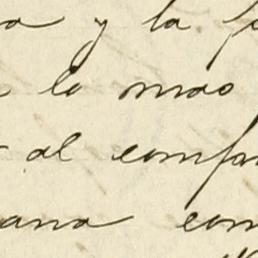 y la
lo mas
al compa
ana com